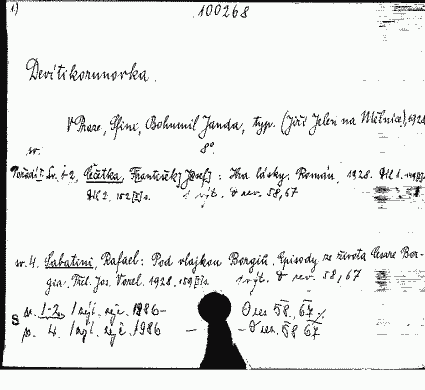 1) 100268
Devítikorunovka.
V Praze, Sfinx, Bohumil Janda, typ. (Jiří Jelen na Mělníce), 192
sv. 8°.
Sv. 1-2. Čečetka, František J[osef]: Hra lásky. Román. 1928. Díl 1.
Díl 2. 152 s. 1 výt. D rev. 58, 67
sv. 4. Sabatini, Rafael: Pod vlajkou Borgiů. Episody ze života Cesare Bor-
gia. Přel. Jos. Vorel. 1928. 159 s. 1 výt. D rev. 58, 67
sv. 1-2. 1 výt. 1986 - D rev 58, 67
sv. 4. 1 výt. 1986 - D rev. 58 67